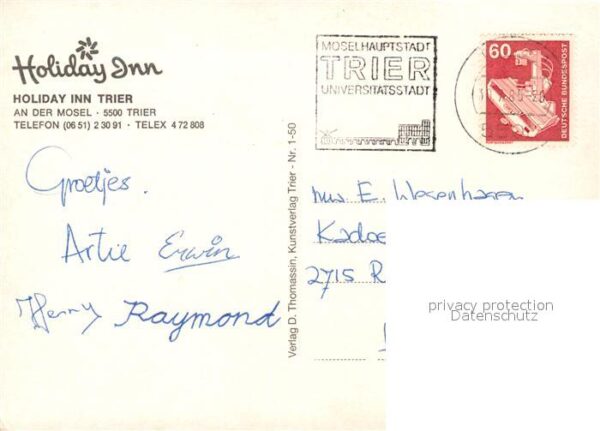 Holiday Inn
HOLIDAY INN TRIER
AN DER MOSEL · 5500 TRIER
TELEFON (06 51) 2 30 91 · TELEX 4 72 808
MOSELHAUPTSTADT
TRIER
UNIVERSITÄTSSTADT
60
DEUTSCHE BUNDESPOST
Groetjes.
Artie Erwin
Henny Raymond
Verlag D. Thomassin, Kunstverlag Trier - Nr. 1-50
E. Wesenhagen
Kadoe
2715 R
privacy protection
Datenschutz